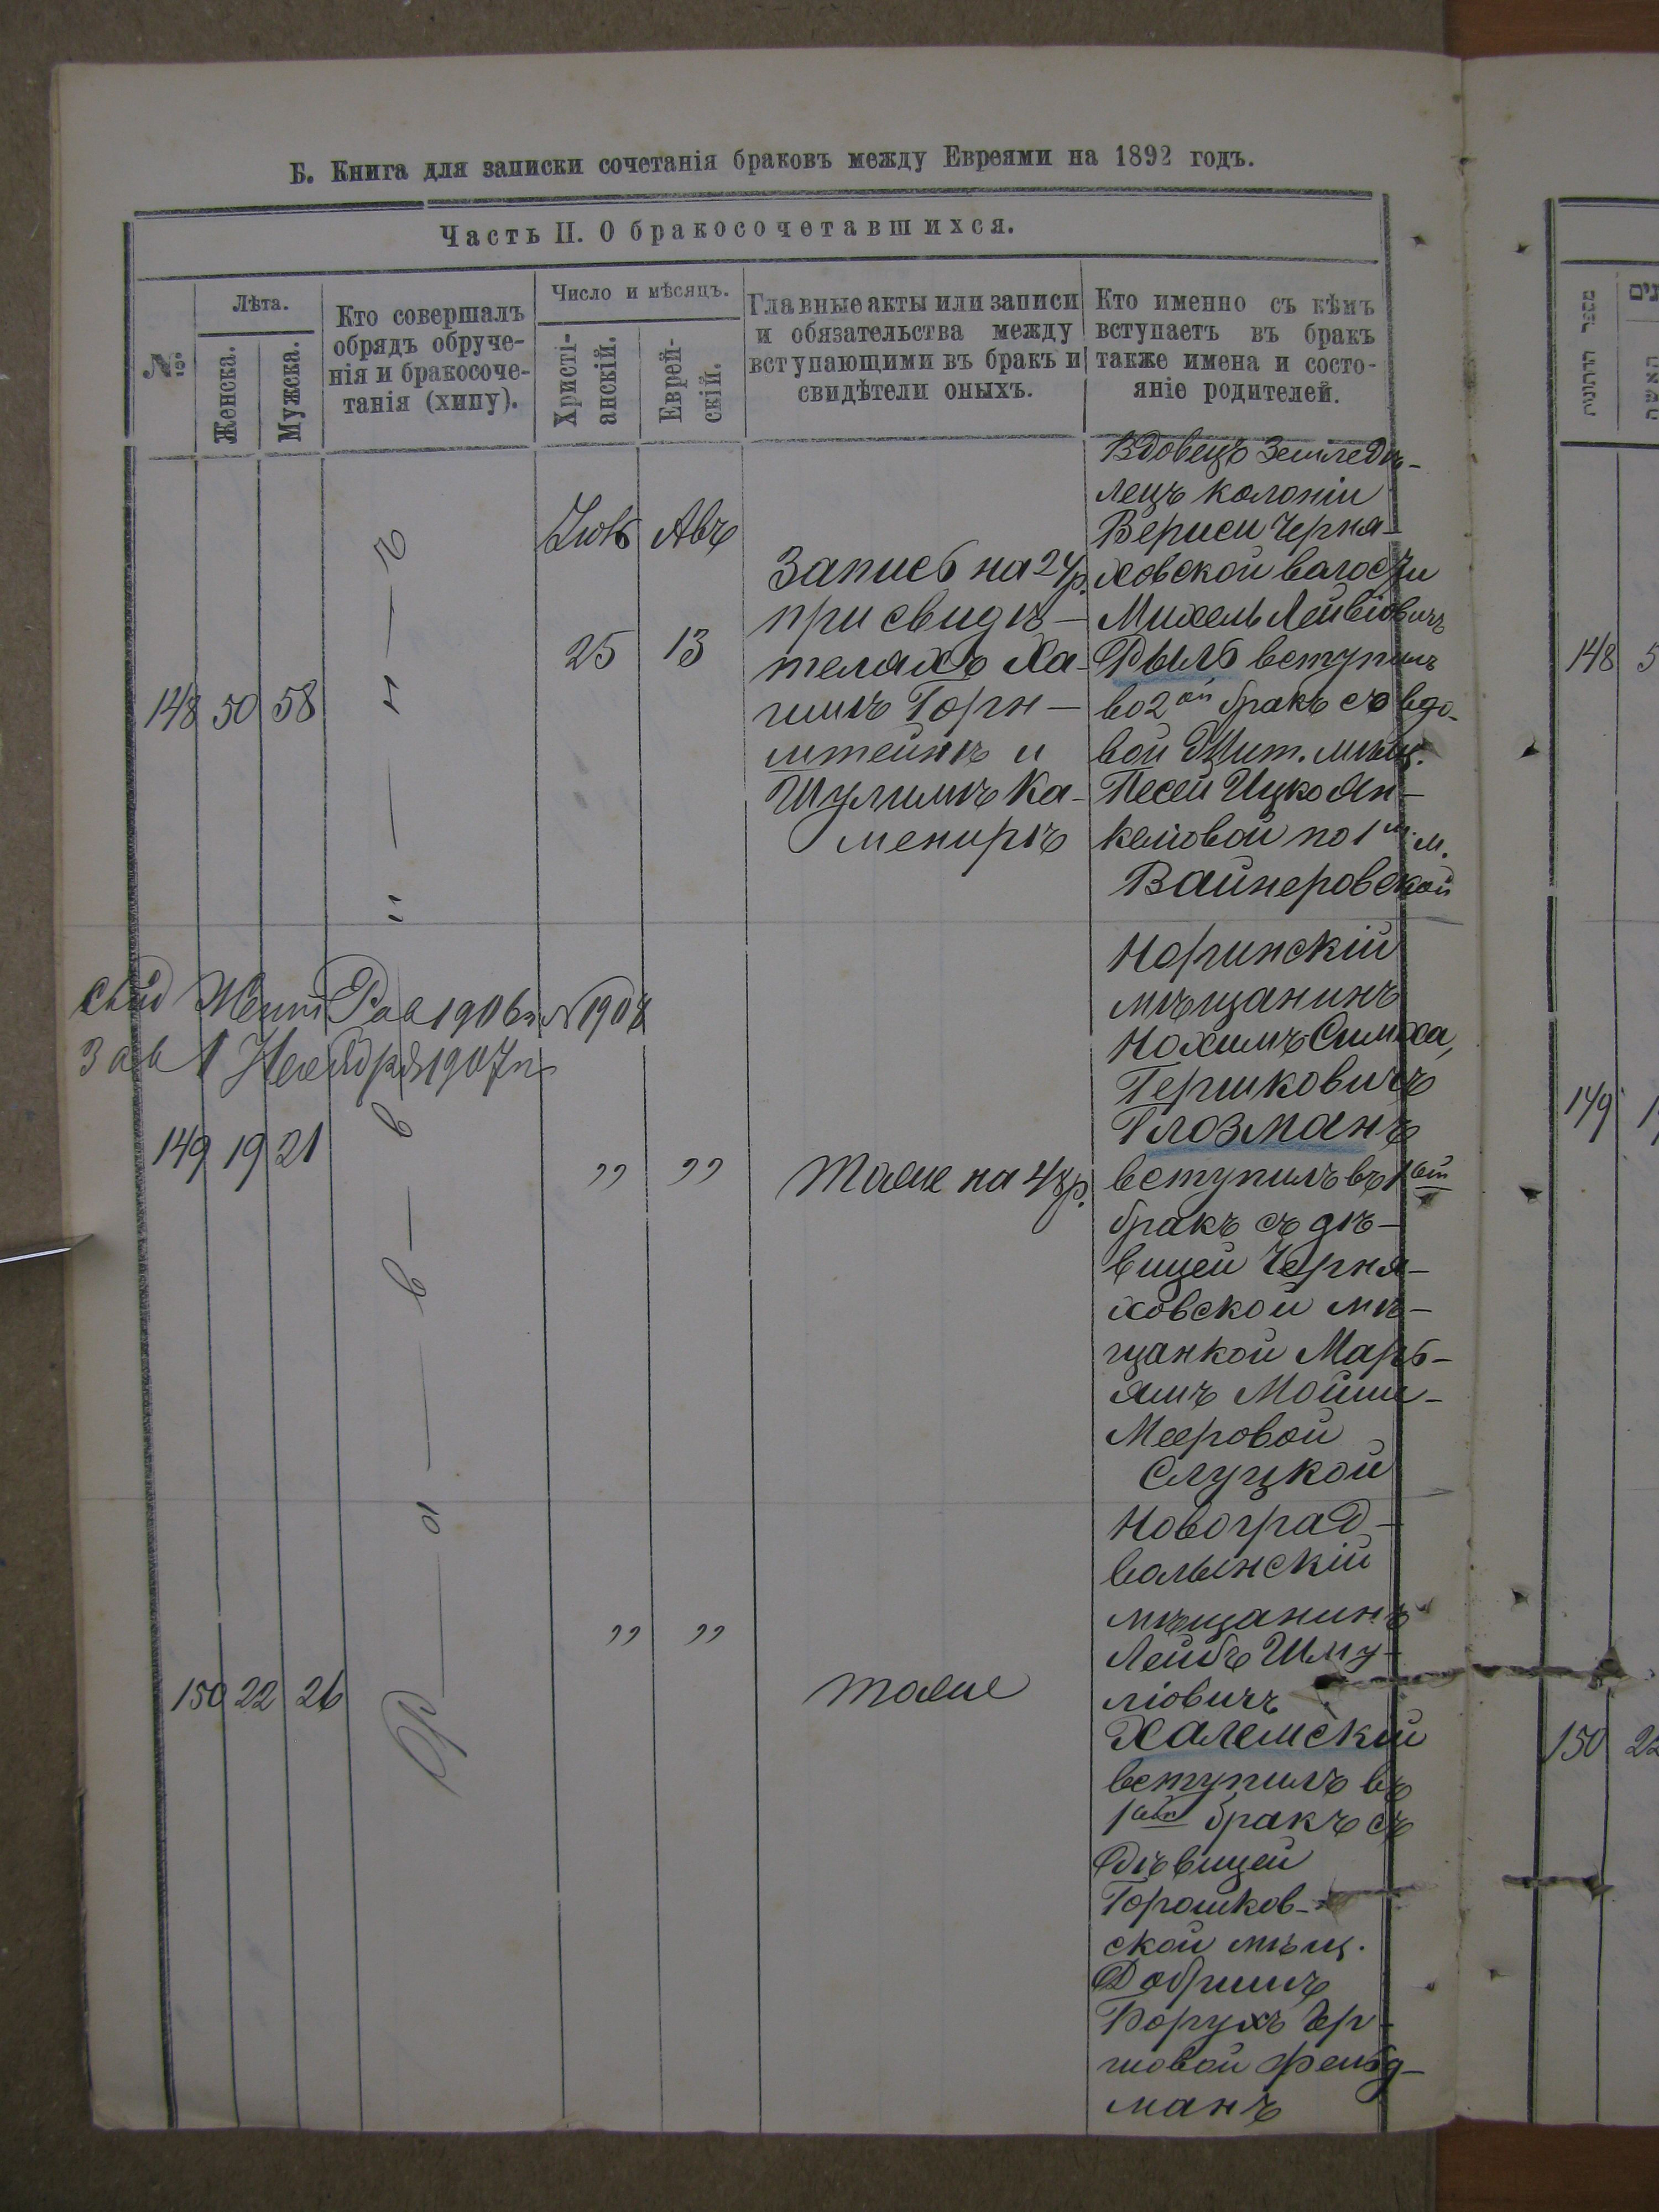 Б. Книга для записки сочетанія браковъ между Евреями на 1892 годъ.
Часть II. О бракосочетавшихся.
№
Лѣта.
Женска.
Мужска.
Кто совершалъ
обрядъ обруче-
нія и бракосоче-
танія (хипу).
Число и мѣсяцъ.
Христі-
анскій.
Еврей-
скій.
Главные акты или записи
и обязательства между
вступающими въ бракъ и
свидѣтели оныхъ.
Кто именно съ кѣмъ
вступаетъ въ бракъ
также имена и состо-
яніе родителей.
148 50 58
Авъ
25 13
Запись на 24 р.
при свидѣ-
теляхъ Ха-
имъ Горн-
штейнъ и
Шулимъ Ка-
мениръ
Вдовецъ Земледѣ-
лецъ колоніи
Вериси Черня-
ховской волости
Михель Лейвіовичъ
Рыль вступилъ
во 2ой бракъ съ вдо-
вой Жит. мѣщ.
Песей Ицко Ян-
келіовой по 1 м. м.
Вайнеровской
Свид 1906 г № 1908
1 Ноября 1907 г
149 19 21
" "
Тоже на 48 р.
Норинскій
мѣщанинъ
Нохимъ Симха
Гершковичъ
Глозманъ
вступилъ въ 1ый
бракъ съ дѣ-
вицей Черня-
ховской мѣ-
щанкой Марь-
ямъ Мойши-
Мееровой
Слуцкой
150 22 26
" "
тоже
Новоград-
волынскій
мѣщанинъ
Лейбъ Шму-
ліовичъ
Халемскій
вступилъ въ
1ый бракъ съ
дѣвицей
Горошков-
ской мѣщ.
Добришъ
Борухъ Гер-
шовой Фельд-
манъ
148 5
149 1
150 22
מספר החתונות
האשה